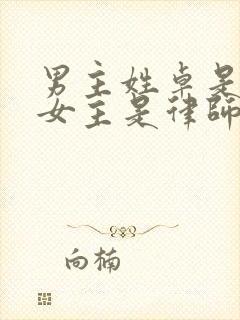 男主姓卓是
女主是律师
向楠